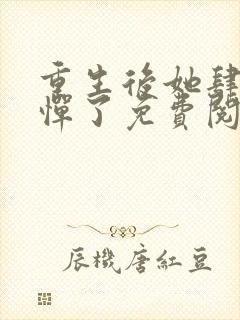 重生後她肆
憚了免費閱
辰機唐紅豆